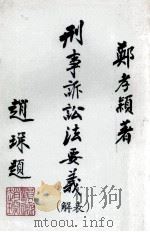 鄭孝穎著
刑事訴訟法要義
(表解)
趙琛題